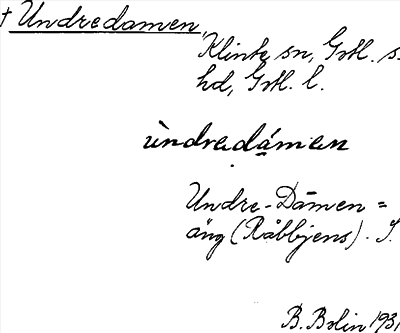 † Undredamen,
Klinte sn, Gotl. s.
hd, Gotl. l.
ùndredámen
Undre-Dāmen =
äng (Råbbjens). I.
B. Bolin 1931